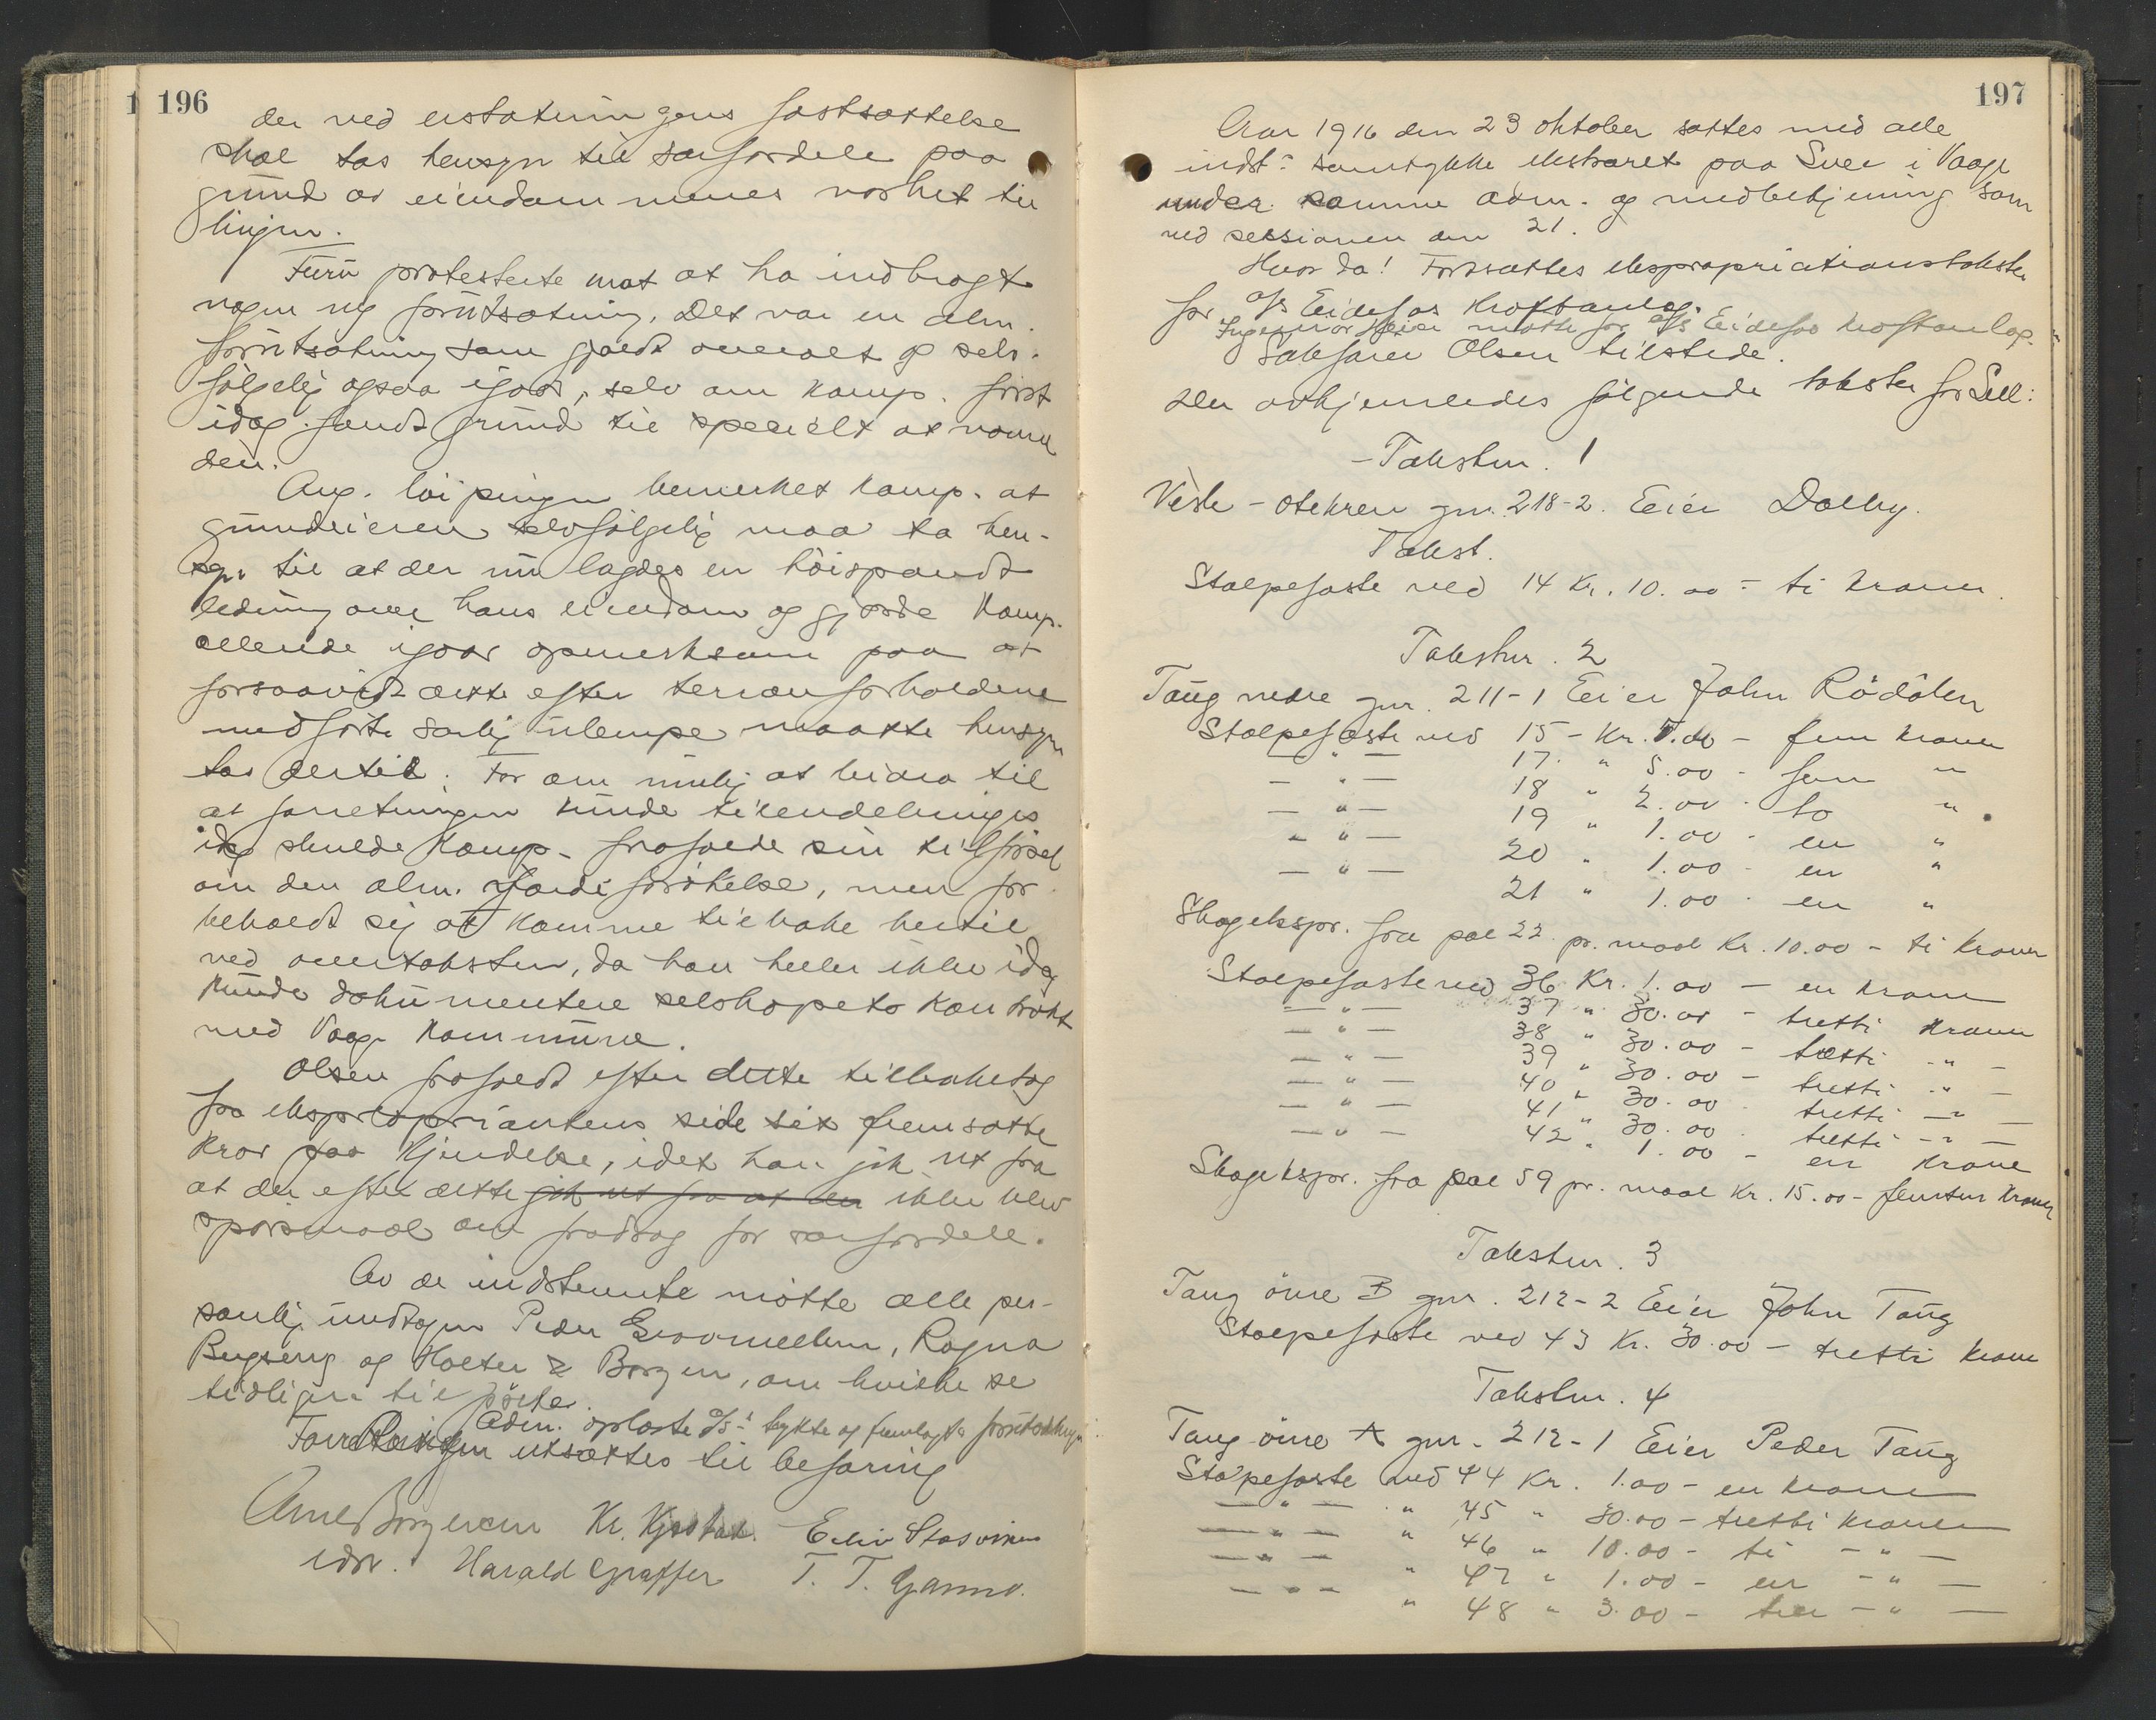 196
der ved erstatningens fastsættelse
skal tas hensyn til særfordele paa
grund av eiendommenes nærhet til
linjen.
Furu protesterte mot at ha indbragt
nogen ny forutsætning. Det var en alm.
forutsætning som gjaldt overalt og selv-
følgelig ogsaa igaar, selv om Kamp. først
idag fandt grund til specielt at nævne
den.
Ang. løipingen bemerket Kamp. at
grundeieren selvfølgelig maa ta hen-
syn til at der nu lagdes en høispændt
ledning over hans eiendom og gjorde Kamp.
allerede igaar opmerksom paa at
forsaavidt dette efter terrænforholdene
medførte særlig ulempe maatte hensyn
tas dertil. For om mulig at bidra til
at forretningen kunde tilendebringes
idag skulde Kamp. frafalde sin tilførsel
om den alm. værdiforøkelse, men for-
beholdt sig at komme tilbake hertil
ved overtaksten, da han heller ikke idag
kunde dokumentere selskapets kontrakt
med Vaage kommune.
Olsen frafaldt efter dette tilbaketog
fra ekspropriantens side sit fremsatte
krav paa kjendelse, idet han gik ut fra
at der efter dette gik ut fra at der ikke blev
spørsmaal om fradrag for særfordele.
Av de indstevnte møtte alle per-
sonlig undtagen Peder , Ragna
og Holter & Borgen, om hvilke se
tidligere tilførsler.
Adm. oplæste a/s's trykte og fremlagte forutsætninger.
Forretningen utsættes til befaring
Arne Borgersen Kr. Kjæstad. Eiliv Stasviken
edsv. Harald Graffer T. T. Garmo.
197
Aar 1916 den 23 oktober sattes med alle
indst.s samtykke ekstraret paa Svee i Vaage
under samme adm. og medbetjening som
ved sessionen den 21.
Hvor da! Fortsattes ekspropriationstaksten
for a/s Eidefos kraftanlæg.
Ingeniør Heier møtte for a/s Eidefos kraftanlæg.
Sakfører Olsen tilstede.
Der avhjemledes følgende takster for Sell:
- Takstnr. 1
Vesle-Otekren gnr. 218-2. Eier Dalby.
Takst.
Stolpefæste ved 14 Kr. 10.00 - ti kroner.
Takstnr. 2
Taug nedre gnr. 211-1 Eier John Rødølen
Stolpefæste ved 15 - Kr. 5.00 - fem kroner
— " — 17. " 5.00 - fem "
— " — 18 " 2.00 - to "
— " — 19 " 1.00 - en "
— " — 20 " 1.00 - en "
— " — 21 " 1.00 - en "
Skogekspr. fra pæl 22 pr. maal Kr. 10.00 - ti kroner
Stolpefæste ved 36 Kr. 1.00 — en krone
— " — 37 " 30.00 - tretti kroner
— " — 38 " 30.00 - tretti - " -
— " — 39 " 30.00 - tretti - " -
— " — 40 " 30.00 - tretti — " —
— " — 41 " 30.00 - tretti - " —
— " — 42 " 1.00 - en krone
Skogekspr. fra pæl 59 pr. maal Kr. 15.00 - femten kroner
Takstnr. 3
Taug øvre B gnr. 212-2 Eier John Taug
Stolpefæste ved 43 Kr. 30.00 - tretti kroner
Takstnr. 4
Taug øvre A gnr. 212-1 Eier Peder Taug
Stolpefæste ved 44 Kr. 1.00 - en krone
— " — " 45 " 30.00 - tretti kroner
— " — " 46 " 10.00 - ti - " —
— " — " 47 " 1.00 - en - " —
— " — " 48 " 3.00 - tre - " —